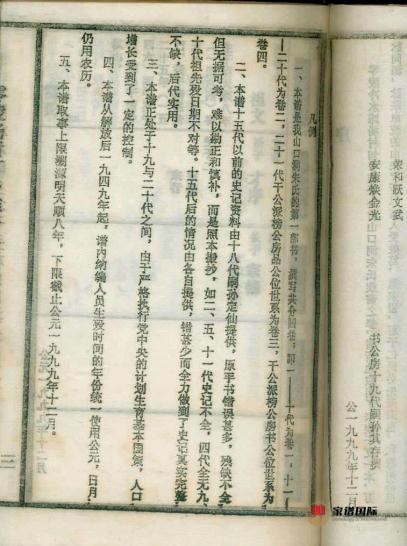 荣和跃文武
安康焕金光
书公房十九代嗣孙其存
公一九九九年十二月
凡例
一、本谱是我山口洞朱氏的第一部书，撰写共分四卷，即一——十代为卷一，十一
—二十代为卷二，二十一代干公派榜公房品公位世系为卷三，干公派榜公房书公位世系为
卷四。
二、本谱十五代以前的史记资料由十八代嗣孙定仙提供，原手书错误甚多，残缺不全
但无据可考，难以勘正和慎补，而是照本搬抄，如二、五、十一代史记不全，四代全无九、
十代祖先殁日期不对等。十五代后的情况由各自提供，错甚少而全力做到了史记真实完整
不缺，后代实用。
三、本谱正处于十九与二十代之间，由于严格执行党中央的计划生育基本国策，人口
增长受到了一定的控制。
四、本谱从解放后一九四九年起，谱内纳编人员生殁时间的年份统一使用公元，日月
仍用农历。
五、本谱取事上限溯源明天顺八年，下限截止公元一九九九年十二月。
家谱国际